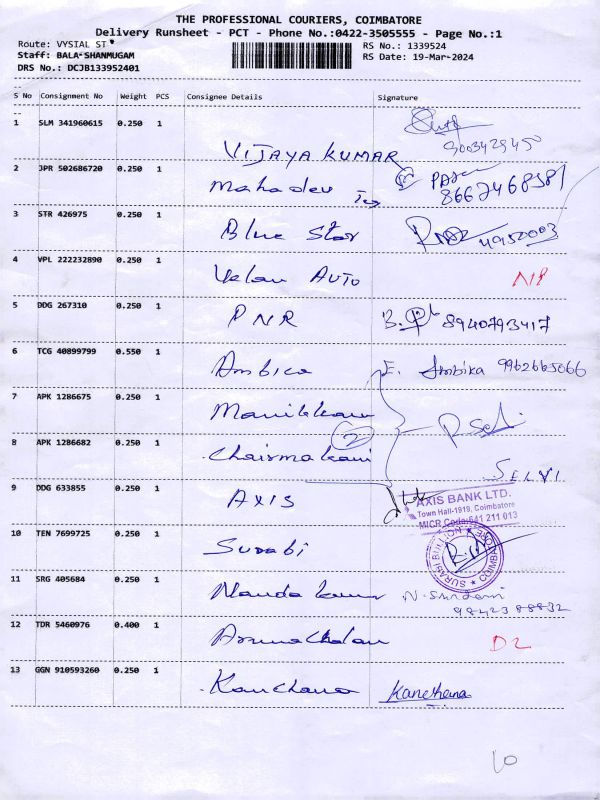 THE PROFESSIONAL COURIERS, COIMBATORE
Delivery Runsheet - PCT - Phone No.:0422-3505555 - Page No.:1
Route: VYSIAL ST RS No.: 1339524
Staff: BALA-SHANMUGAM RS Date: 19-Mar-2024
DRS No.: DCJB133952401
S No Consignment No Weight PCS Consignee Details Signature
1 SLM 341960615 0.250 1 VIJAYA KUMAR
2 JPR 502686720 0.250 1 Mahadev 8667468581
3 STR 426975 0.250 1 Blue Star
4 VPL 222232890 0.250 1 Velan AUTO
5 DDG 267310 0.250 1 PNR B. 8940793417
6 TCG 40899799 0.550 1 Ambica E. Ambika 9962665066
7 APK 1286675 0.250 1
8 APK 1286682 0.250 1 2
SELVI
9 DDG 633855 0.250 1 AXIS
AXIS BANK LTD.
Town Hall-1919, Coimbatore
MICR Code:641 211 013
10 TEN 7699725 0.250 1 Surabi
11 SRG 405684 0.250 1 Nanda kumar N.
9842388832
12 TDR 5460976 0.400 1 Arunachalam D2
13 GGN 910593260 0.250 1 Kanchana Kanchana
10